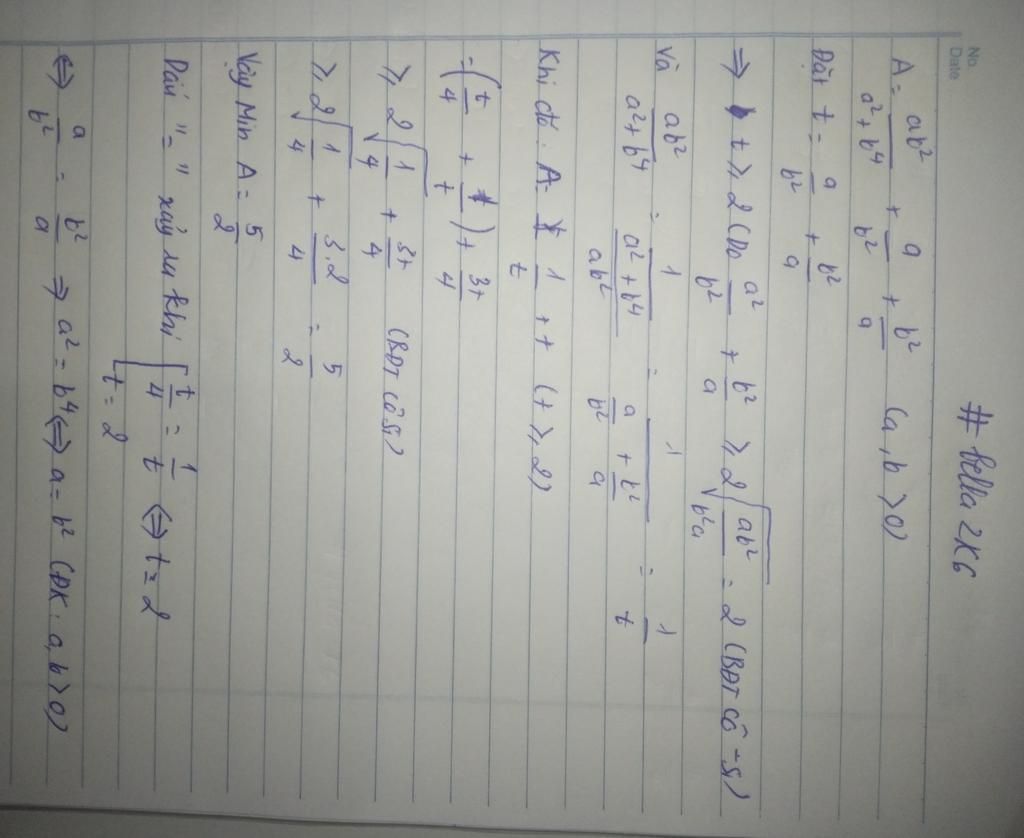 No.
Date
# bella 2K6
A = ab²/(a²+b⁴) + a/b² + b²/a (a, b > 0)
Đặt t = a/b² + b²/a
⇒ t ≥ 2 (Do a²/b² + b²/a ≥ 2√(ab²/b²a) = 2 (BĐT Cô-si)
Và ab²/(a²+b⁴) = 1/((a²+b⁴)/ab²) = 1/(a/b² + b²/a) = 1/t
Khi đó: A = 1/t + t (t ≥ 2)
= (t/4 + 1/t) + 3t/4
≥ 2√(1/4) + 3t/4 (BĐT Cô si)
≥ 2√(1/4) + 3.2/4 = 5/2
Vậy Min A = 5/2
Dấu "=" xảy ra khi [t/4 = 1/t ⇔ t = 2
t = 2
⇔ a/b² = b²/a ⇒ a² = b⁴ ⇔ a = b² (ĐK: a, b > 0)